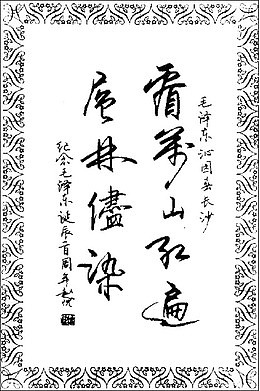 毛泽东沁园春长沙
看萬山红遍
层林儘染
纪念毛泽东诞辰百周年